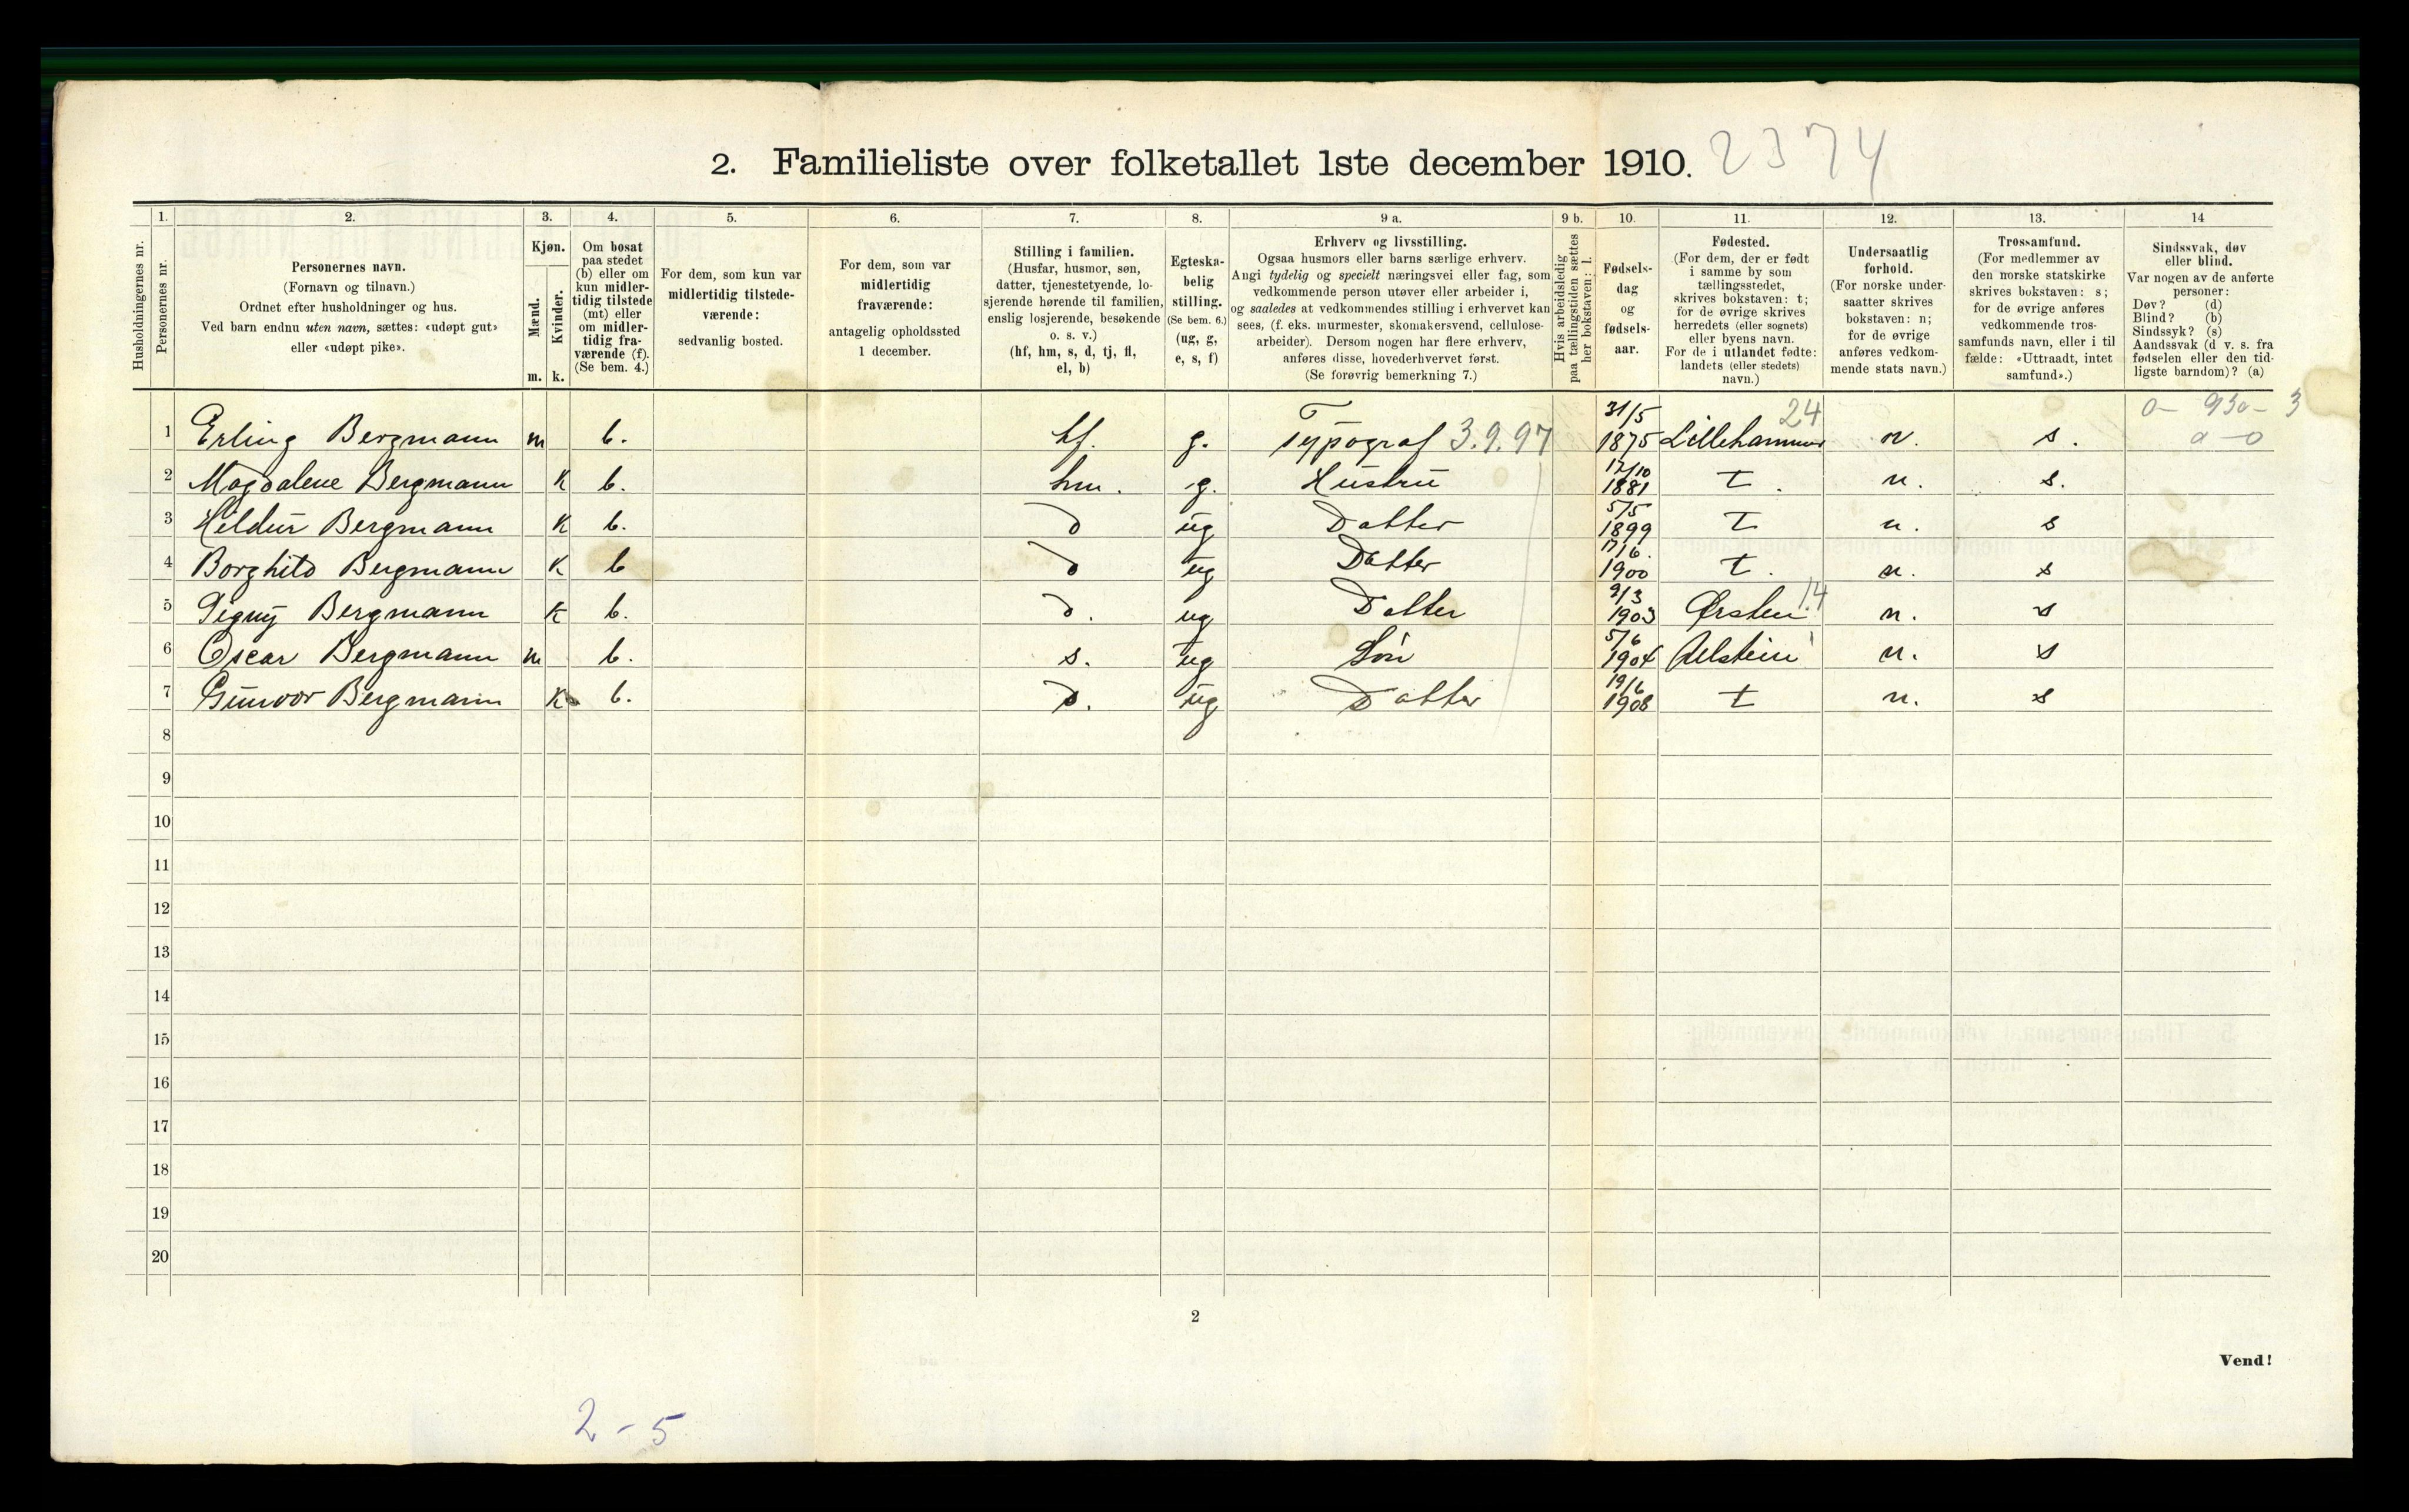 2. Familieliste over folketallet 1ste december 1910. 2374
Husholdningernes nr.
1.
Personernes nr.
2.
Personernes navn.
(Fornavn og tilnavn.)
Ordnet efter husholdninger og hus.
Ved barn endnu uten navn, sættes: «udøpt gut»
eller «udøpt pike».
3.
Kjøn.
Mænd.
m.
Kvinder.
k.
4.
Om bosat
paa stedet
(b) eller om
kun midler-
tidig tilstede
(mt) eller
om midler-
tidig fra-
værende (f).
(Se bem. 4.)
5.
For dem, som kun var
midlertidig tilstede-
værende:
sedvanlig bosted.
6.
For dem, som var
midlertidig
fraværende:
antagelig opholdssted
1 december.
7.
Stilling i familien.
(Husfar, husmor, søn,
datter, tjenestetyende, lo-
sjerende hørende til familien,
enslig losjerende, besøkende
o. s. v.)
(hf, hm, s, d, tj, fl,
el, b)
8.
Egteska-
belig
stilling.
(Se bem. 6.)
(ug, g,
e, s, f)
9 a.
Erhverv og livsstilling.
Ogsaa husmors eller barns særlige erhverv.
Angi tydelig og specielt næringsvei eller fag, som
vedkommende person utøver eller arbeider i,
og saaledes at vedkommendes stilling i erhvervet kan
sees, (f. eks. murmester, skomakersvend, cellulose-
arbeider). Dersom nogen har flere erhverv,
anføres disse, hovederhvervet først.
(Se forøvrig bemerkning 7.)
9 b.
Hvis arbeidsledig
paa tællingstiden sættes
her bokstaven: l.
10.
Fødsels-
dag
og
fødsels-
aar.
11.
Fødested.
(For dem, der er født
i samme by som
tællingsstedet,
skrives bokstaven: t;
for de øvrige skrives
herredets (eller sognets)
eller byens navn.
For de i utlandet fødte:
landets (eller stedets)
navn.)
12.
Undersaatlig
forhold.
(For norske under-
saatter skrives
bokstaven: n;
for de øvrige
anføres vedkom-
mende stats navn.)
13.
Trossamfund.
(For medlemmer av
den norske statskirke
skrives bokstaven: s;
for de øvrige anføres
vedkommende tros-
samfunds navn, eller i til
fælde: «Uttraadt, intet
samfund».)
14
Sindssvak, døv
eller blind.
Var nogen av de anførte
personer:
Døv? (d)
Blind? (b)
Sindssyk? (s)
Aandssvak (d v. s. fra
fødselen eller den tid-
ligste barndom)? (a)
1 Erling Bergmann m b. hf. g. Typograf 3.9.97 31/5 1875 Lillehammer 24 n. s. 0- 930- 3 0-0
2 Magdalene Bergmann K b. hm. g. Hustru 17/10 1881 t. n. s.
3 Hildur Bergmann K b. d ug Datter 5/5 1899 t n. s
4 Borghild Bergmann K b d ug Datter 17/6. 1900 t. n. s
5 Signy Bergmann K b. d. ug Datter 9/3 1903 Ørsten 14 n. s
6 Oscar Bergmann m b. s. ug Søn 5/6 1904 n. s
7 Gunvor Bergmann K b. d. ug Datter 19/6 1908 t n. s
8
9
10
11
12
13
14
15
16
17
18
19
20
2
Vend!
2-5